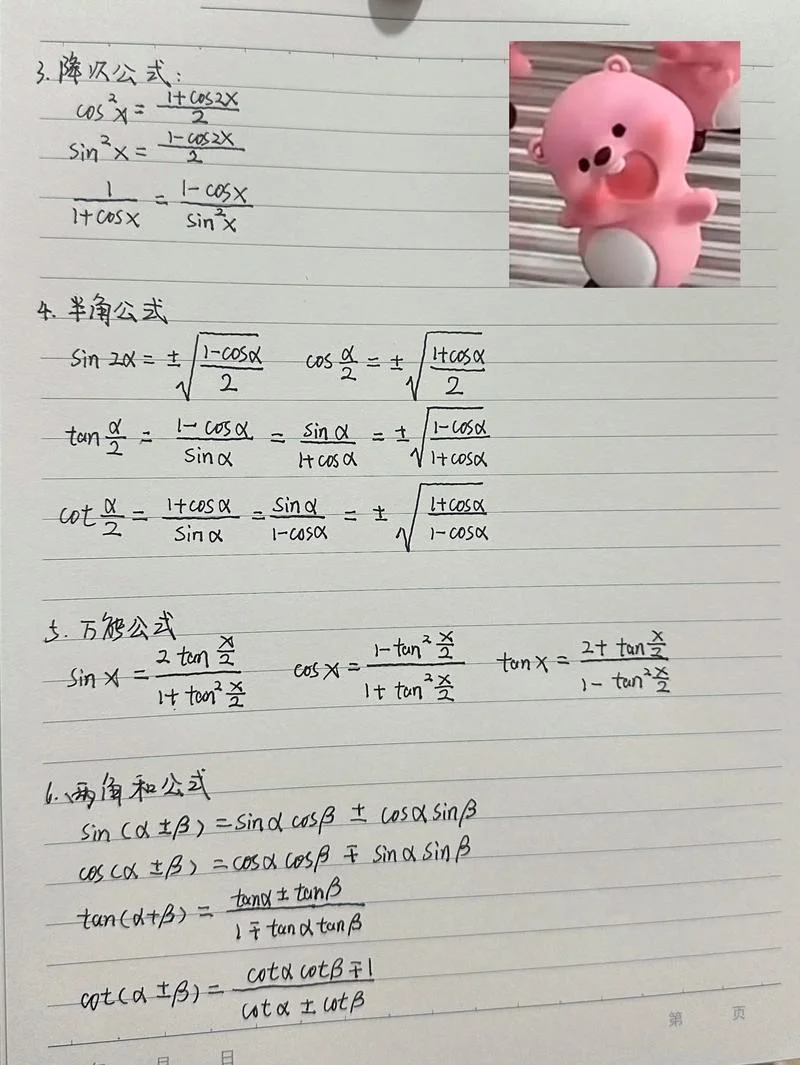 3. 降次公式:
cos²x = (1+cos2x)/2
sin²x = (1-cos2x)/2
1/(1+cosx) = (1-cosx)/sin²x
4. 半角公式
sin 2α = ±√((1-cosα)/2) cos α/2 = ±√((1+cosα)/2)
tan α/2 = (1-cosα)/sinα = sinα/(1+cosα) = ±√((1-cosα)/(1+cosα))
cot α/2 = (1+cosα)/sinα = sinα/(1-cosα) = ±√((1+cosα)/(1-cosα))
5. 万能公式
sin x = (2 tan x/2)/(1+tan² x/2) cos x = (1-tan² x/2)/(1+tan² x/2) tan x = (2+tan x/2)/(1-tan² x/2)
6. 两角和公式
sin(α±β) = sinαcosβ ± cosαsinβ
cos(α±β) = cosαcosβ ∓ sinαsinβ
tan(α+β) = (tanα±tanβ)/(1∓tanαtanβ)
cot(α±β) = (cotαcotβ∓1)/(cotα±cotβ)
第 页
年 月 日